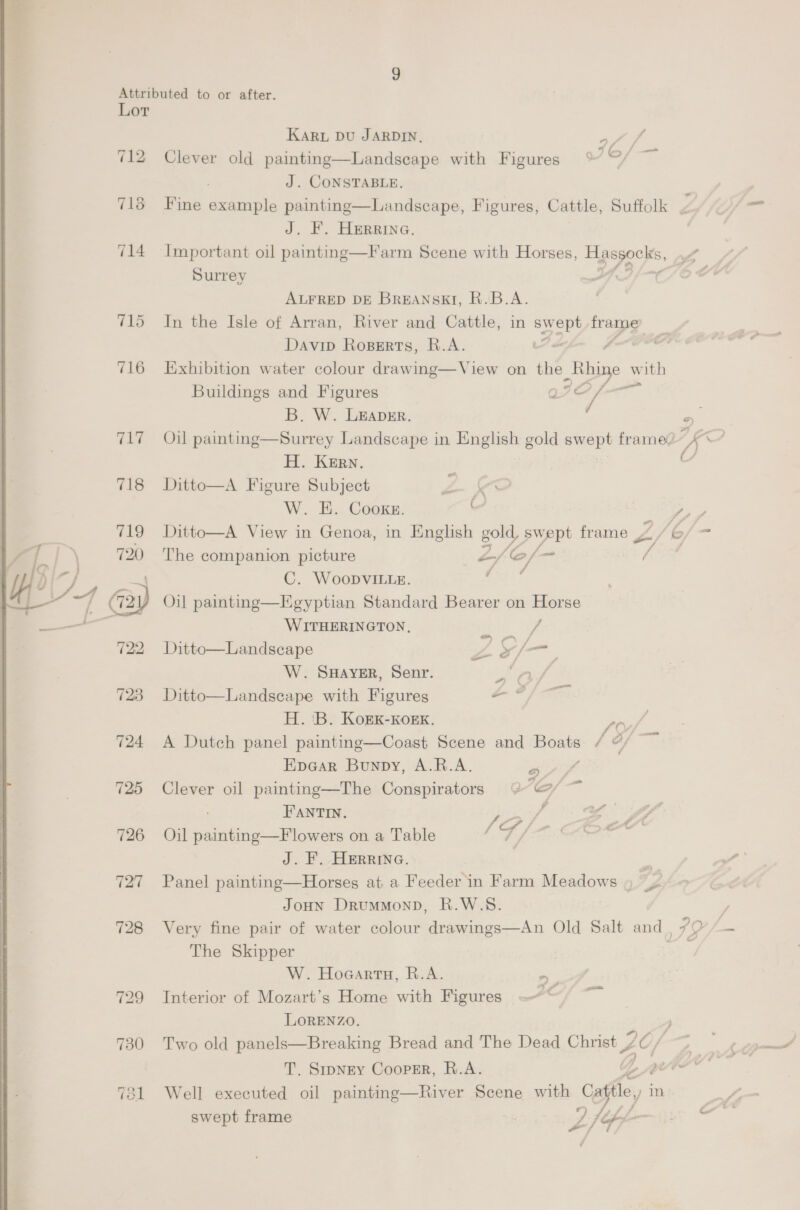 9
Attributed to or after.
Lot
KARL DU JARDIN.
712 Clever old painting—Landscape with Figures
J. CONSTABLE.
713 Fine example painting—Landscape, Figures, Cattle, Suffolk
J. F. HERRING.
714 Important oil painting—Farm Scene with Horses, Hassocks,
Surrey
ALFRED DE BREANSKI, R.B.A.
715 In the Isle of Arran, River and Cattle, in swept frame
DAVID ROBERTS, R.A.
716 Exhibition water colour drawing—View on the Rhine with
Buildings and Figures
B. W. LEADER.
717 Oil painting—Surrey Landscape in English gold swept frame
H. KERN.
718 Ditto—A Figure Subject
W. E. COOKE.
719 Ditto—A View in Genoa, in English gold, swept frame
720 The companion picture
C. WOODVILLE.
721 Oil painting—Egyptian Standard Bearer on Horse
WITHERINGTON.
722 Ditto—Landscape
W. SHAYER, Senr.
723 Ditto—Landscape with Figures
H. B. KOEK-KOEK.
724 A Dutch panel painting—Coast Scene and Boats
EDGAR BUNDY, A.R.A.
725 Clever oil painting—The Conspirators
FANTIN.
726 Oil painting—Flowers on a Table
J. F. HERRING.
727 Panel painting—Horses at a Feeder in Farm Meadows
JOHN DRUMMOND, R.W.S.
728 Very fine pair of water colour drawings—An Old Salt and
The Skipper
W. HOGARTH, R.A.
729 Interior of Mozart's Home with Figures
LORENZO.
730 Two old panels—Breaking Bread and The Dead Christ
T. SIDNEY COOPER, R.A.
731 Well executed oil painting—River Scene with Cattle, in
swept frame